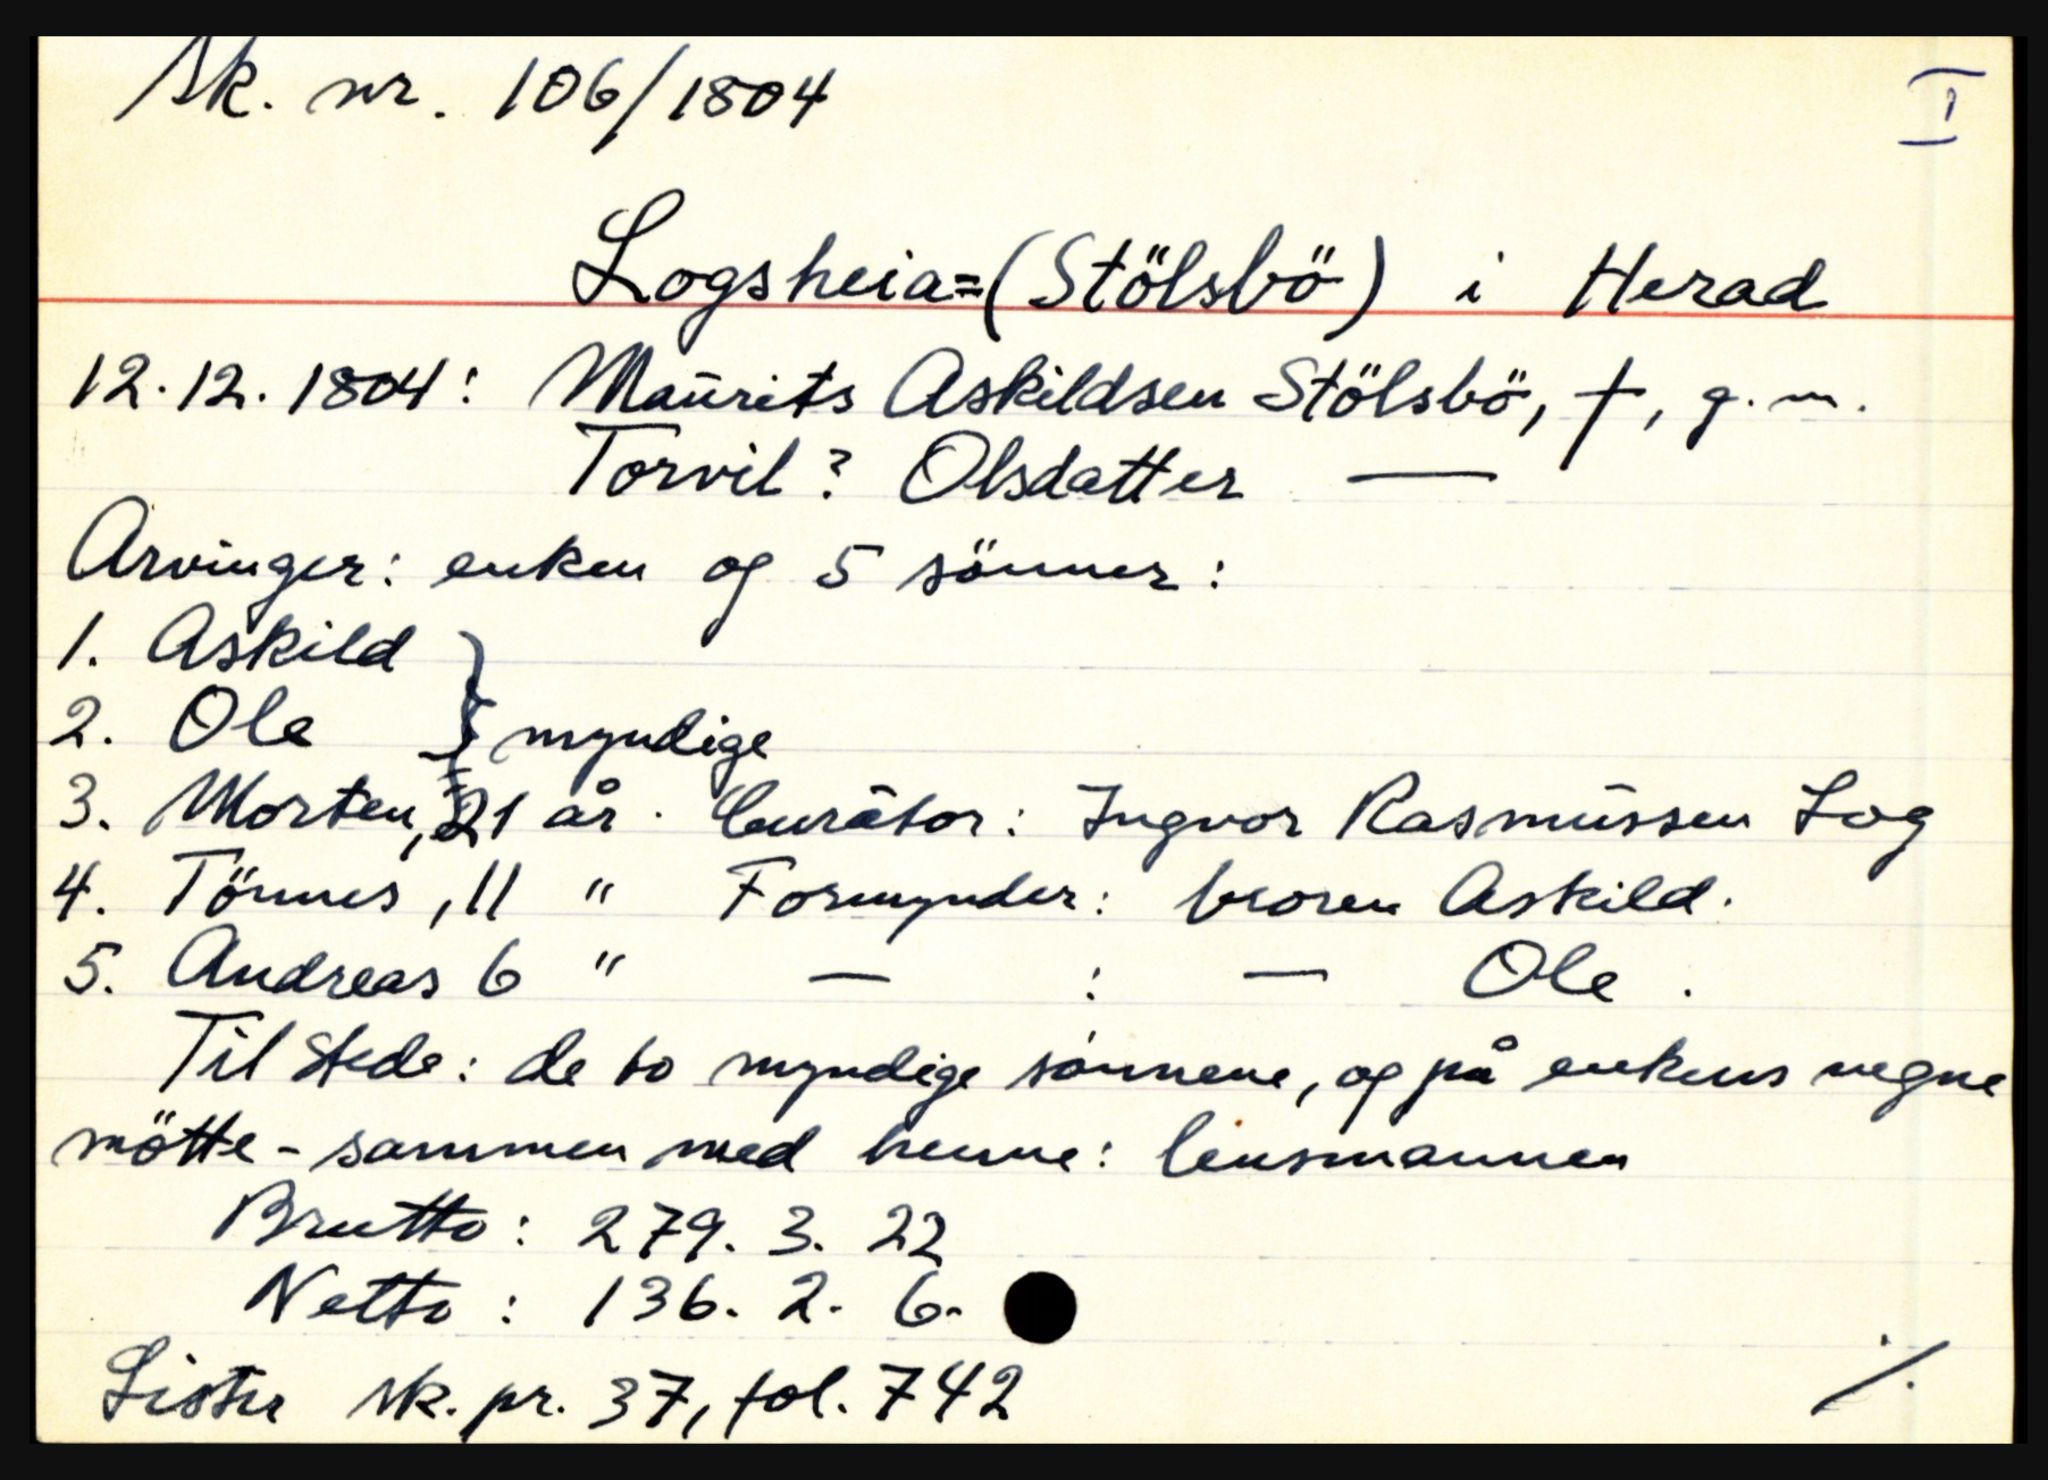 Sk. nr. 106/1804
I
Logsheia=(Stölsbö) i Herad
12.12.1804: Maurits Askildsen Stölsbö, †, g.m.
Torvil? Olsdatter —
Arvinger: enken og 5 sönner:
1. Askild
2. Ole } myndige
3. Morten, 21 år. Curator: Ingvor Rasmussen Log
4. Tönnes, 11 " Formynder: broren Askild.
5. Andreas 6 " — : — Ole.
Til stede: de to myndige sönnene, og på enkens vegne
mötte - sammen med henne: lensmannen
Brutto: 279. 3. 22
Netto: 136. 2. 6.
Lister sk. pr. 37, fol. 742
./.